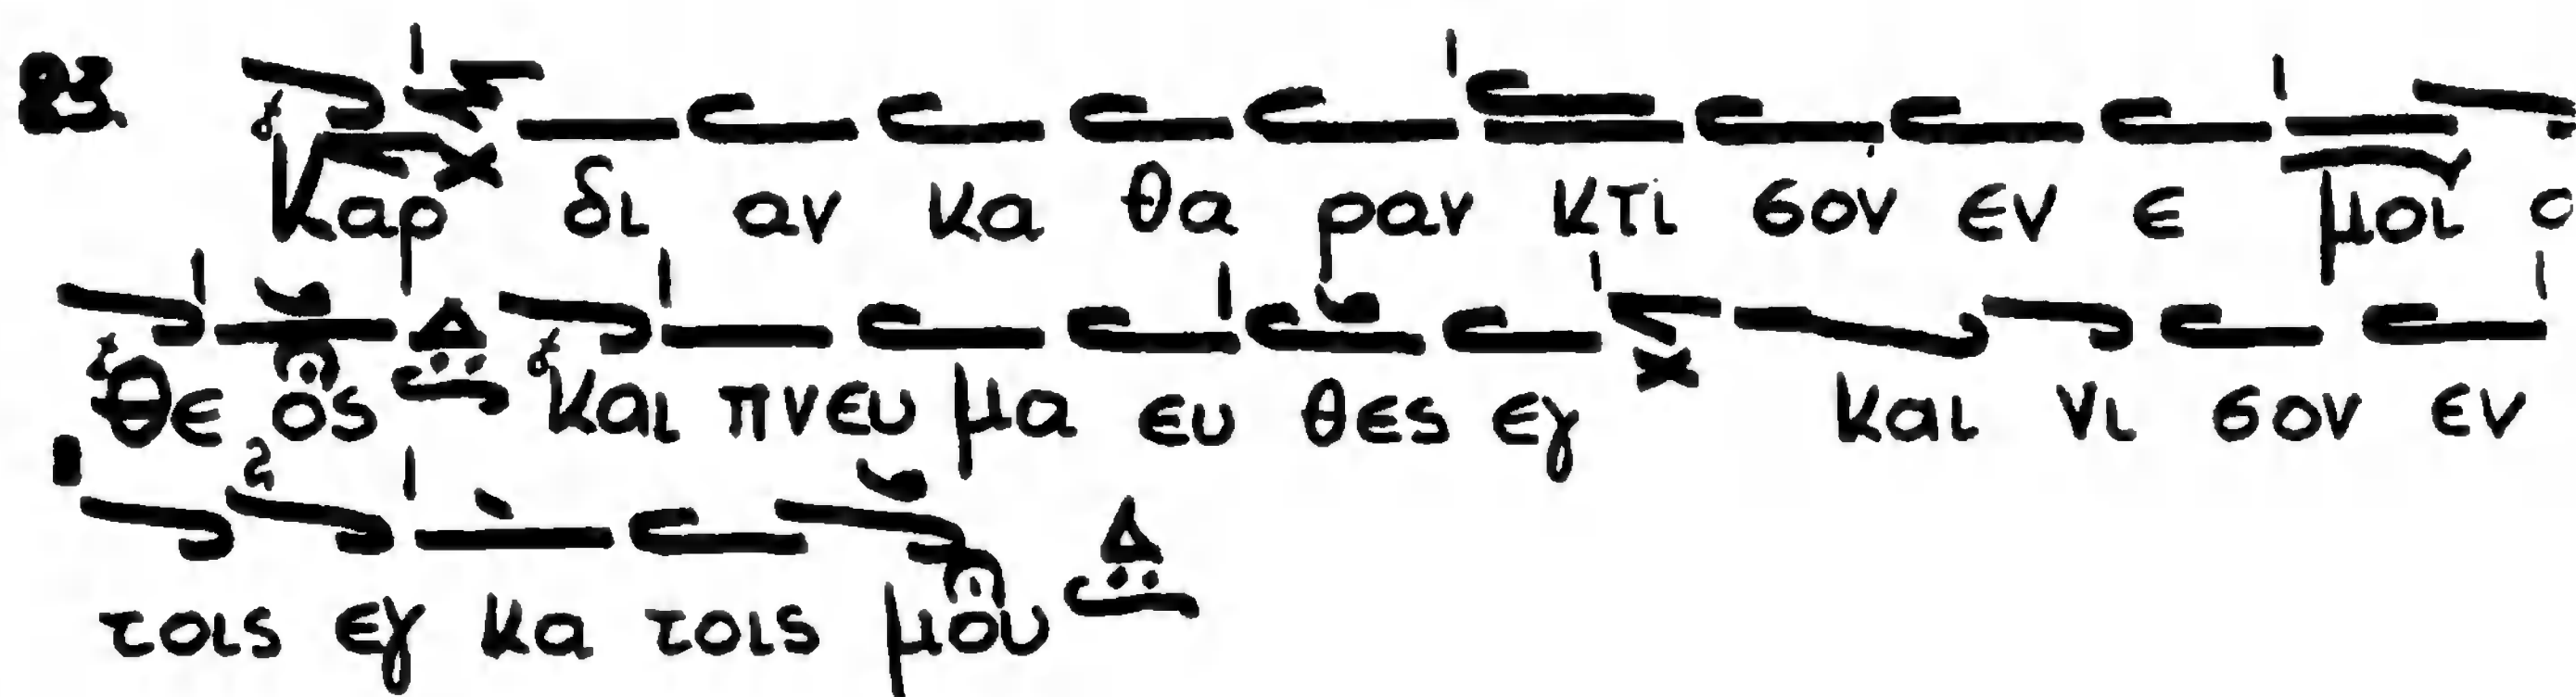 23. Καρ δι αν κα θα ραν κτι σον εν ε μοι ο
Θε ος Δ και πνευ μα ευ θες εγ και νι σον εν
τοις εγ κα τοις μου Δ